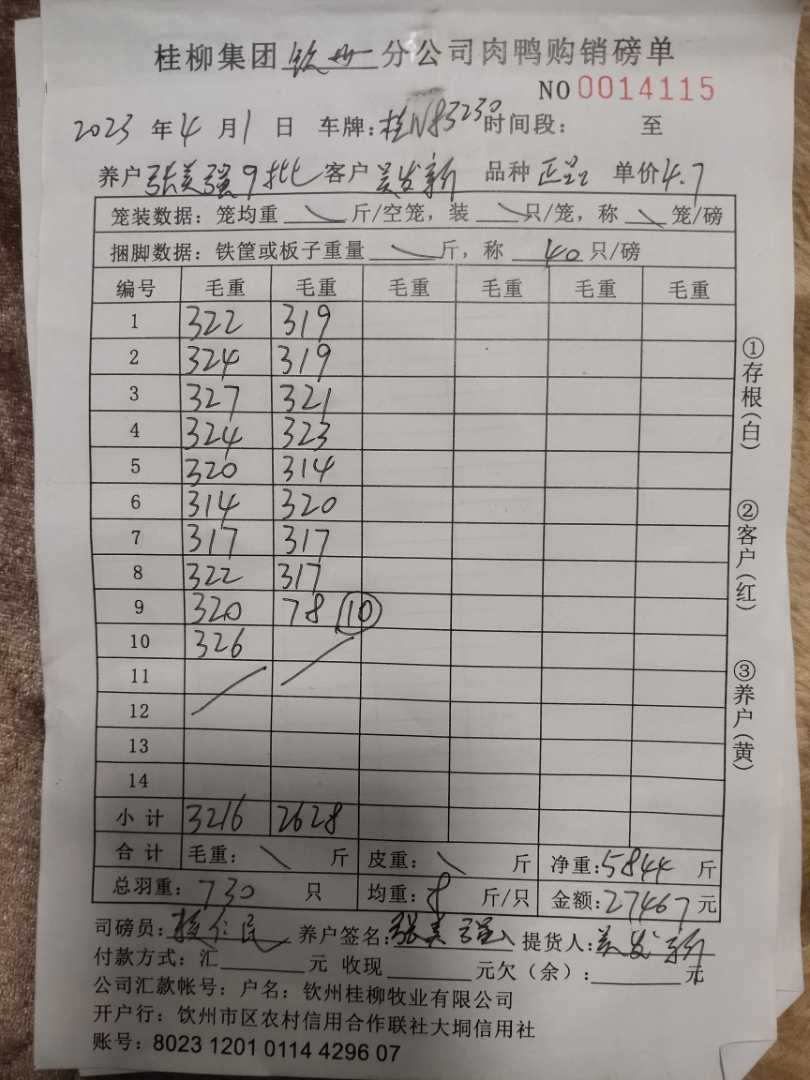 桂柳集团 钦州 分公司肉鸭购销磅单
NO 0014115
2023 年 4 月 1 日 车牌: 桂N83230 时间段: 至
养户 张美强9批 客户 吴发新 品种 正呈 单价 4.7
笼装数据: 笼均重 \ 斤/空笼, 装 \ 只/笼, 称 \ 笼/磅
捆脚数据: 铁筐或板子重量 \ 斤, 称 40 只/磅
编号 毛重 毛重 毛重 毛重 毛重 毛重
1 322 319
2 324 319
3 327 321
4 324 323
5 320 314
6 314 320
7 317 317
8 322 317
9 320 78 ⑩
10 326
11
12
13
14
小计 3216 2628
合计 毛重: \ 斤 皮重: \ 斤 净重: 5844 斤
总羽重: 730 只 均重: 8 斤/只 金额: 27467 元
司磅员: 仁民 养户签名: 张美强 提货人: 吴发新
付款方式: 汇 元 收现 元欠(余): 元
公司汇款帐号: 户名: 钦州桂柳牧业有限公司
开户行: 钦州市区农村信用合作联社大垌信用社
账号: 8023 1201 0114 4296 07
①存根(白)
②客户(红)
③养户(黄)